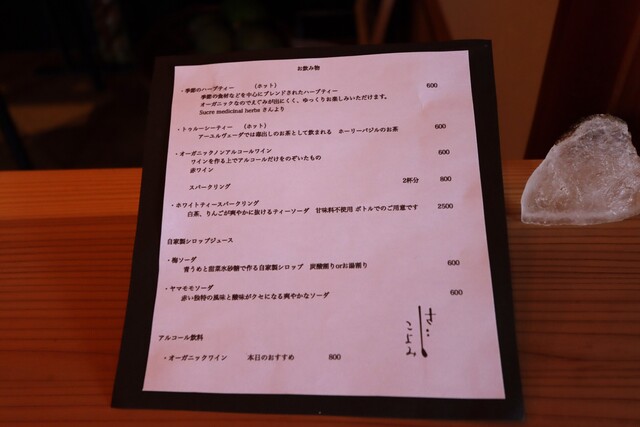 お飲み物
・季節のハーブティー　（ホット）　600
季節の食材などを中心にブレンドされたハーブティー
オーガニックなのでえぐみが出にくく、ゆっくりお楽しみいただけます。
Sucre medicinal herbs さんより
・トゥルーシーティー　（ホット）
アーユルヴェーダでは毒出しのお茶として飲まれる　ホーリーバジルのお茶　600
・オーガニックノンアルコールワイン　600
ワインを作る上でアルコールだけをのぞいたもの
赤ワイン
スパークリング　2杯分　800
・ホワイトティースパークリング
白茶、りんごが爽やかに抜けるティーソーダ　甘味料不使用 ボトルでのご用意です　2500
自家製シロップジュース
・梅ソーダ
青うめと甜菜氷砂糖で作る自家製シロップ　炭酸割りorお湯割り　600
・ヤマモモソーダ
赤い独特の風味と酸味がクセになる爽やかなソーダ　600
アルコール飲料
・オーガニックワイン　本日のおすすめ　800